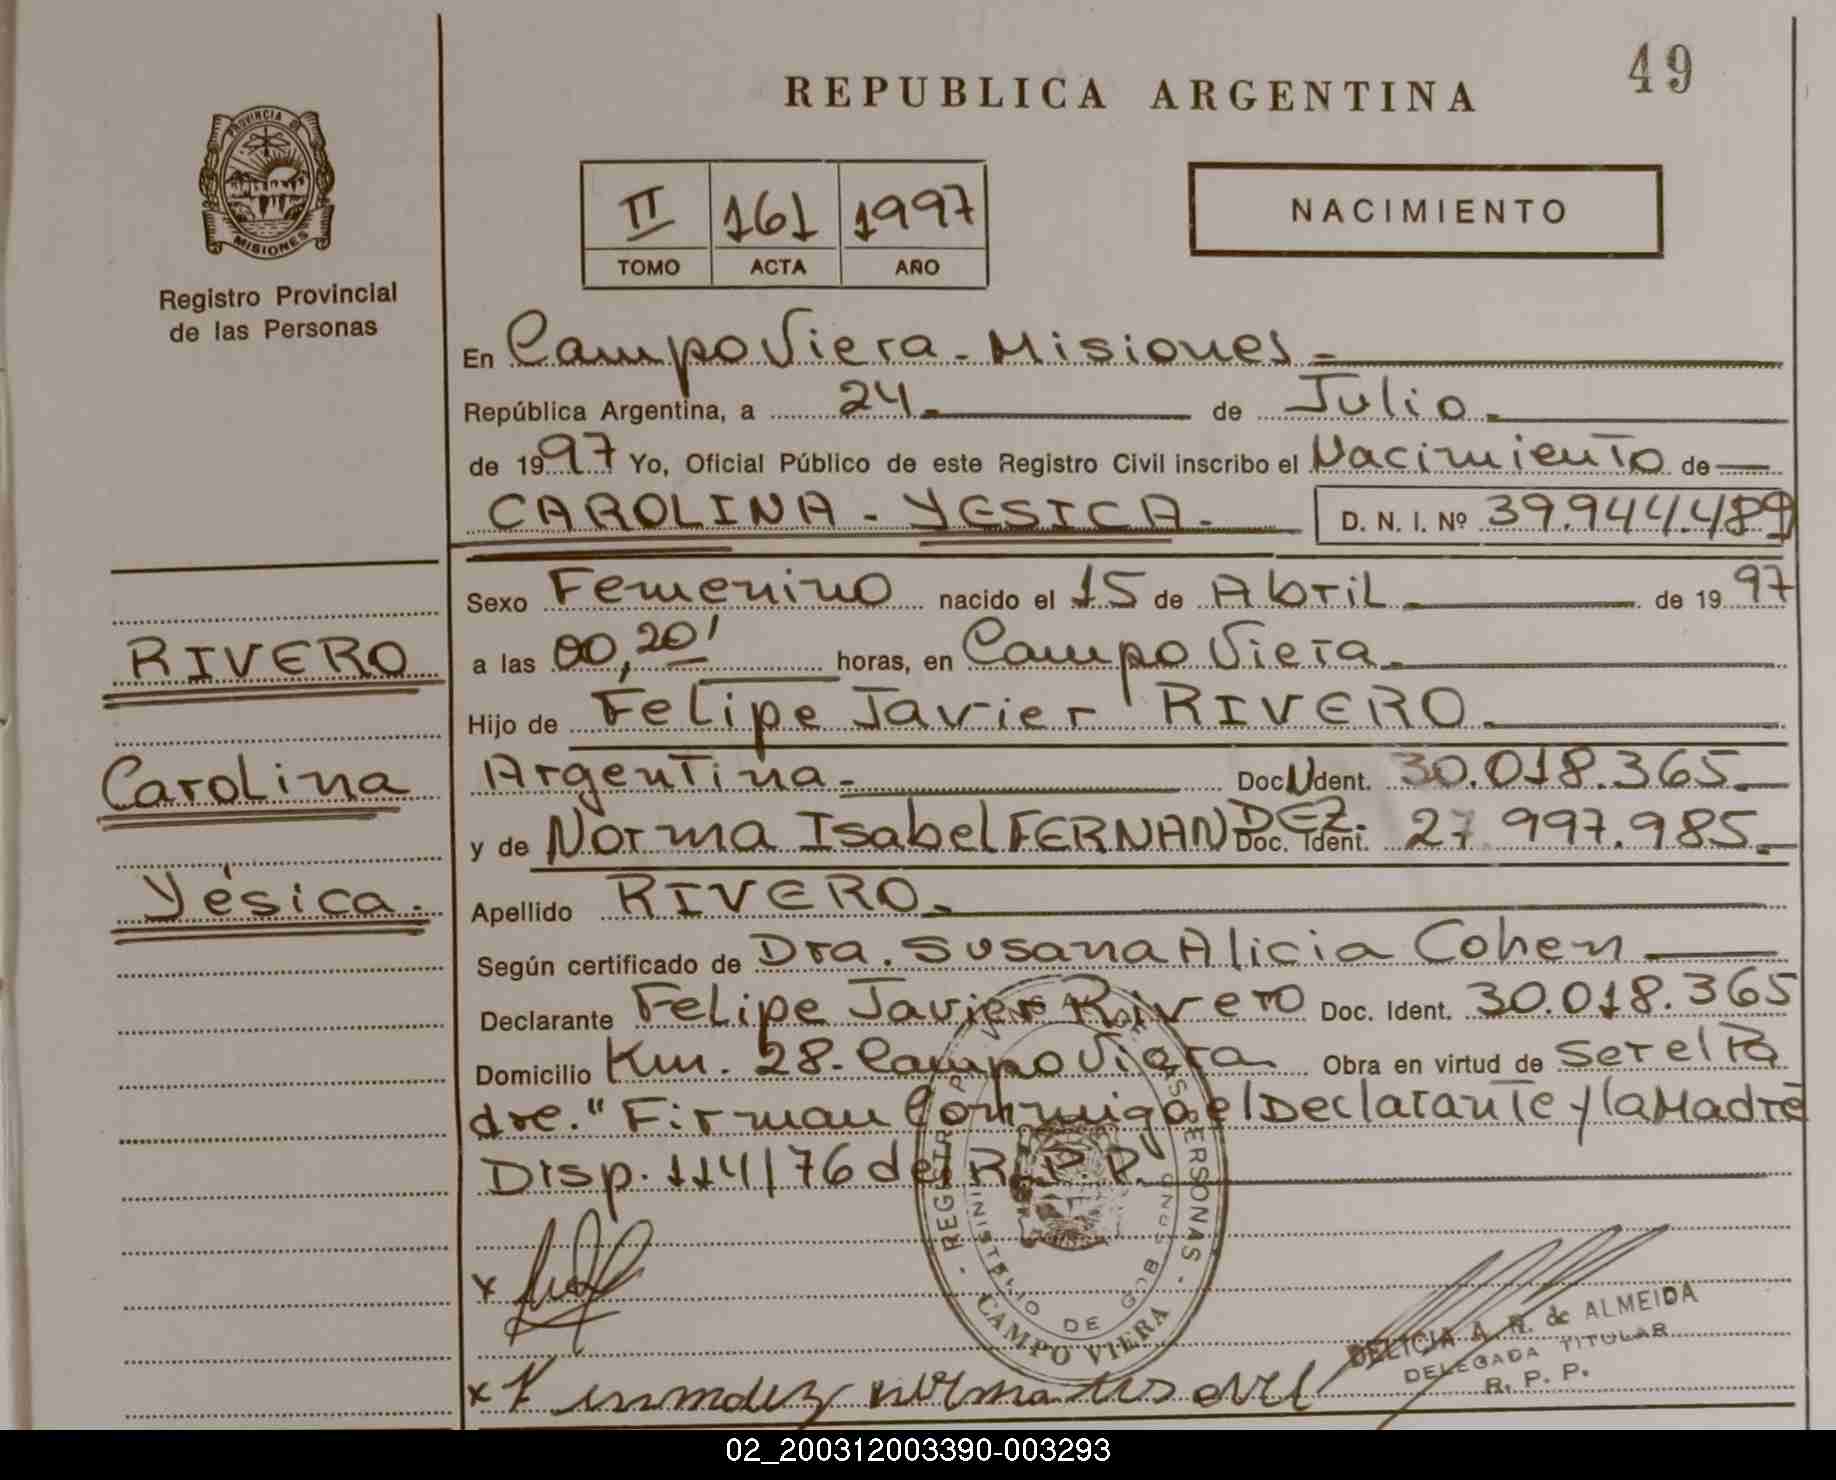 49
REPUBLICA ARGENTINA
PROVINCIA DE
MISIONES
Registro Provincial
de las Personas
II 161 1997
TOMO ACTA AÑO
NACIMIENTO
En Campo Viera - Misiones -
República Argentina, a 24 de Julio
de 1997 Yo, Oficial Público de este Registro Civil inscribo el Nacimiento de
CAROLINA - YESICA - D. N. I. Nº 39.944.489
Sexo Femenino nacido el 15 de Abril de 1997
RIVERO
a las 00,20' horas, en Campo Viera
Hijo de Felipe Javier RIVERO
Carolina
Argentina Doc. Ident. 30.018.365
y de Norma Isabel FERNANDEZ. Doc. Ident. 27 997.985
Yésica.
Apellido RIVERO
Según certificado de Dra. Susana Alicia Cohen
Declarante Felipe Javier Rivero Doc. Ident. 30.018.365
Domicilio Km. 28 - Campo Viera Obra en virtud de Ser el Pa
dre." Firman Conmigo el Declarante y la Madre
Disp. 114/76 del R.P.P.
REGISTR PERSONAS
MINISTERIO DE GOB
CAMPO VIERA
DELICIA A. R. de ALMEIDA
DELEGADA TITULAR
R. P. P.
x
x Fernandez norma isabel
02_200312003390-003293